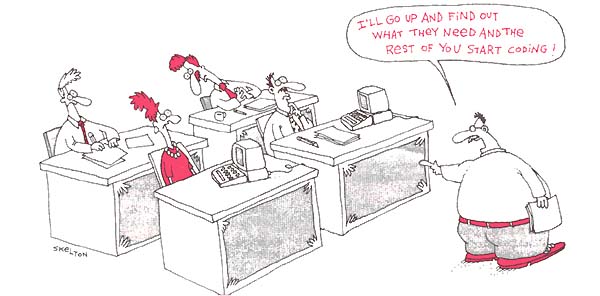 I'LL GO UP AND FIND OUT
WHAT THEY NEED AND THE
REST OF YOU START CODING!
SKELTON